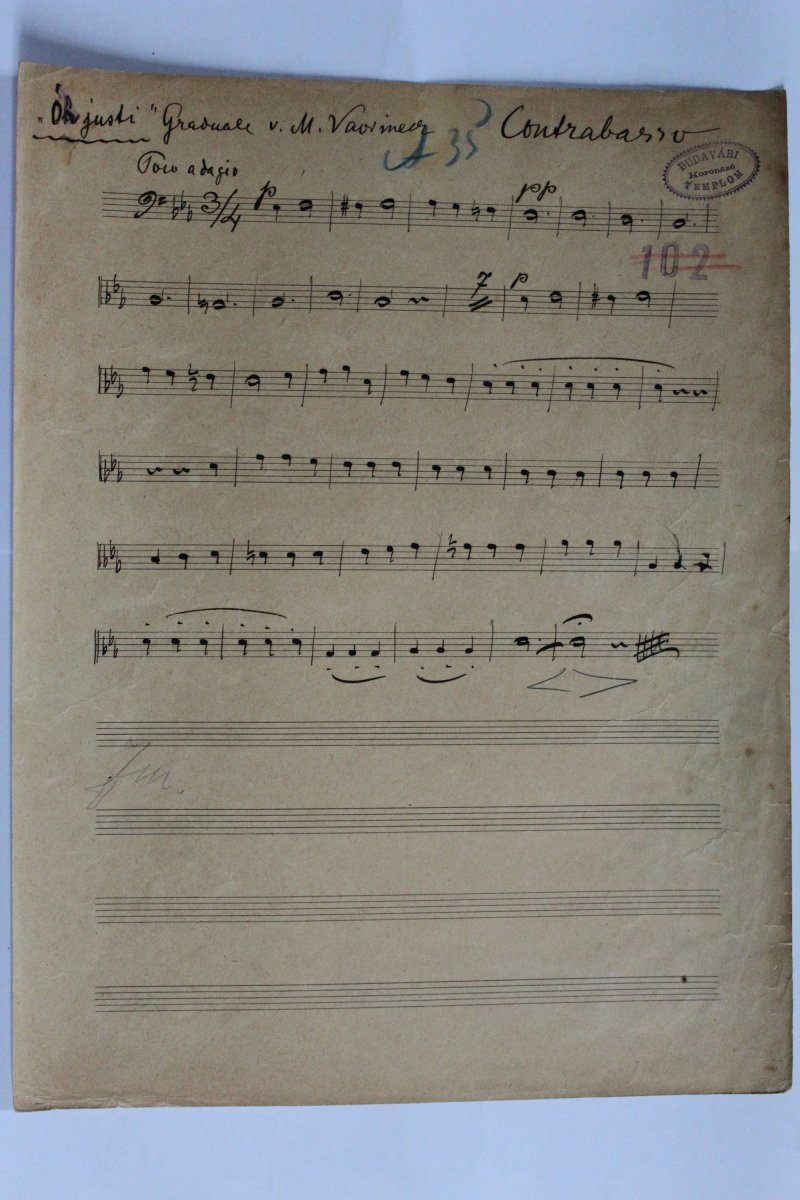 "Os justi" Graduale v. M. Vavrinecz Contrabasso
A 35
BUDAVÁRI
Koronázó
TEMPLOM
Poco adagio
3/4 p pp
102
7 p